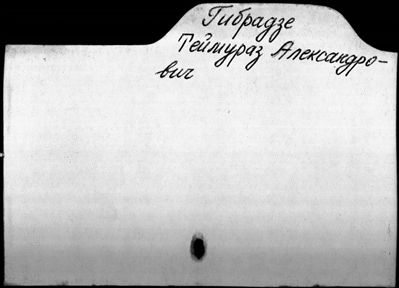 Гибрадзе
Теймураз Александро-
вич